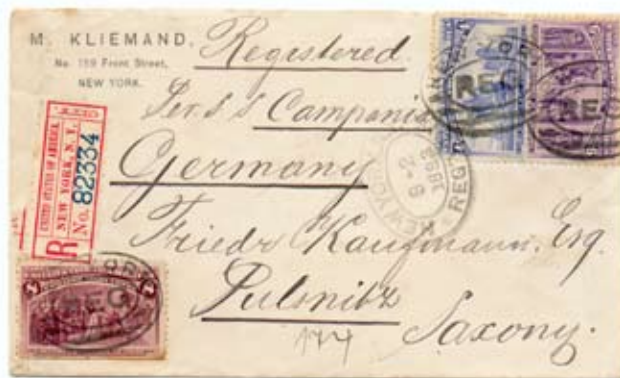 M. KLIEMAND,
No. 159 Front Street,
NEW YORK.
Registered
Per S S Campania
Germany
Friedr Kaufmann, Esq.
Pulsnitz
Saxony.
UNITED STATES OF AMERICA.
NEW YORK, N.Y.
No. 82334
R
REG.
REG
NEW YORK
REG
1893